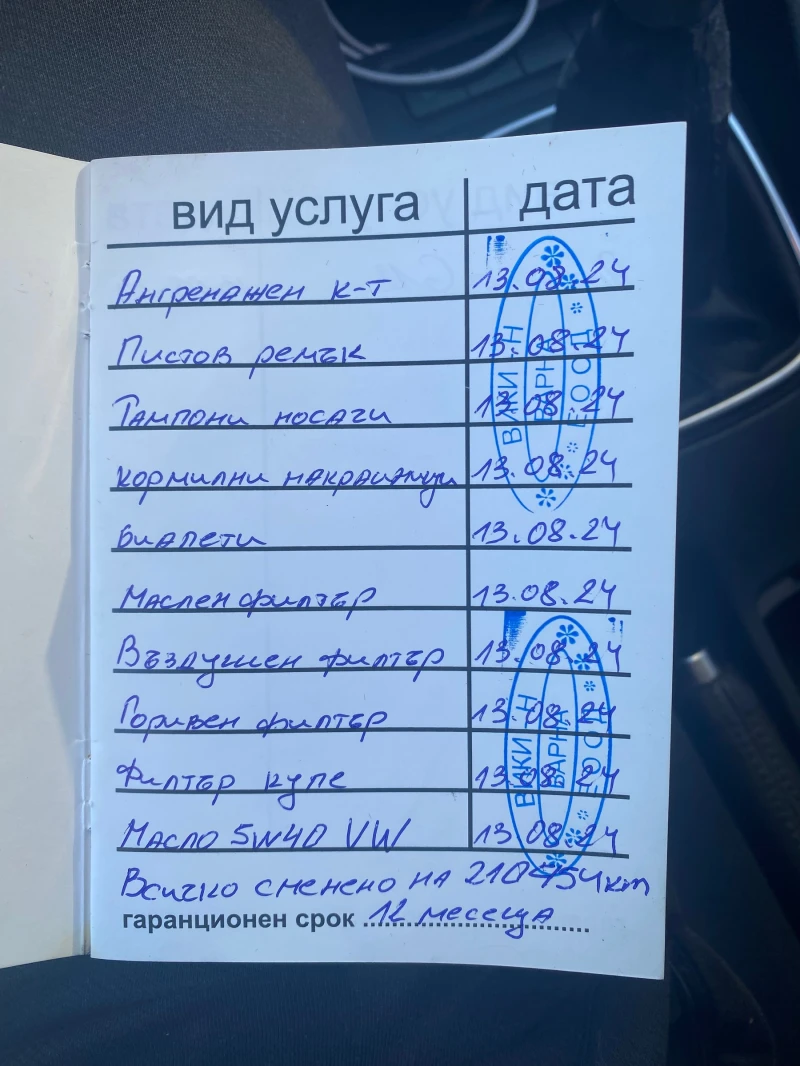 вид услуга дата
Ангренажен к-т 13.08.24
Пистов ремък 13.08.24
Тампони носачи 13.08.24
Кормилни накрайници 13.08.24
Биалети 13.08.24
Маслен филтър 13.08.24
Въздушен филтър 13.08.24
Горивен филтър 13.08.24
Филтър купе 13.08.24
Масло 5W40 VW 13.08.24
Всичко сменено на 210454km
гаранционен срок 12 месеца
ВИКИ Н ЕООД
ВАРНА
ВИКИ Н ЕООД
ВАРНА